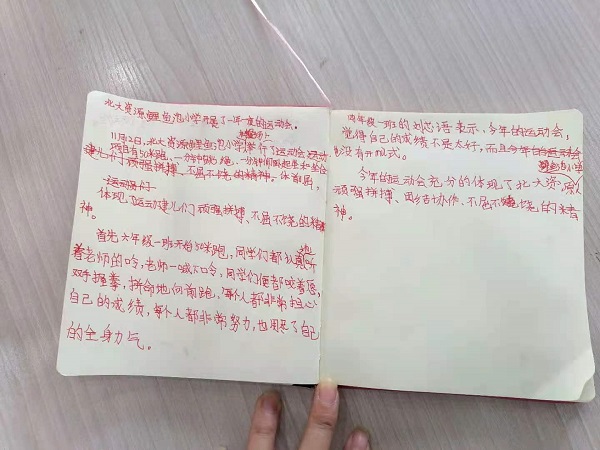 北大资源鲤鱼池小学开展了一年一度的运动会。
11月2日,北大资源鲤鱼池小学举行了运动会
项目有50米跑,一分钟跳绳,一分钟仰卧起坐和坐位
健儿们顽强拼搏、不屈不挠的精神。体前屈,
运动员们
体现了运动健儿们顽强拼搏、不屈不挠的精
神。
首先六年级一班开始50米跑,同学们都认真地听
着老师的口令,老师一喊下口令,同学们便都咬着唇,
双手握拳,拼命地向前跑,每个人都非常担心
自己的成绩,每个人都非常努力,也用尽了自己
的全身力气。
四年级一班的刘芯语表示,今年的运动会,
觉得自己的成绩不是太好,而且今年的运动会
没有开幕式。
鲤鱼池小学
今年的运动会充分的体现了北大资源人
顽强拼搏、团结协作、不屈不挠的精
神。